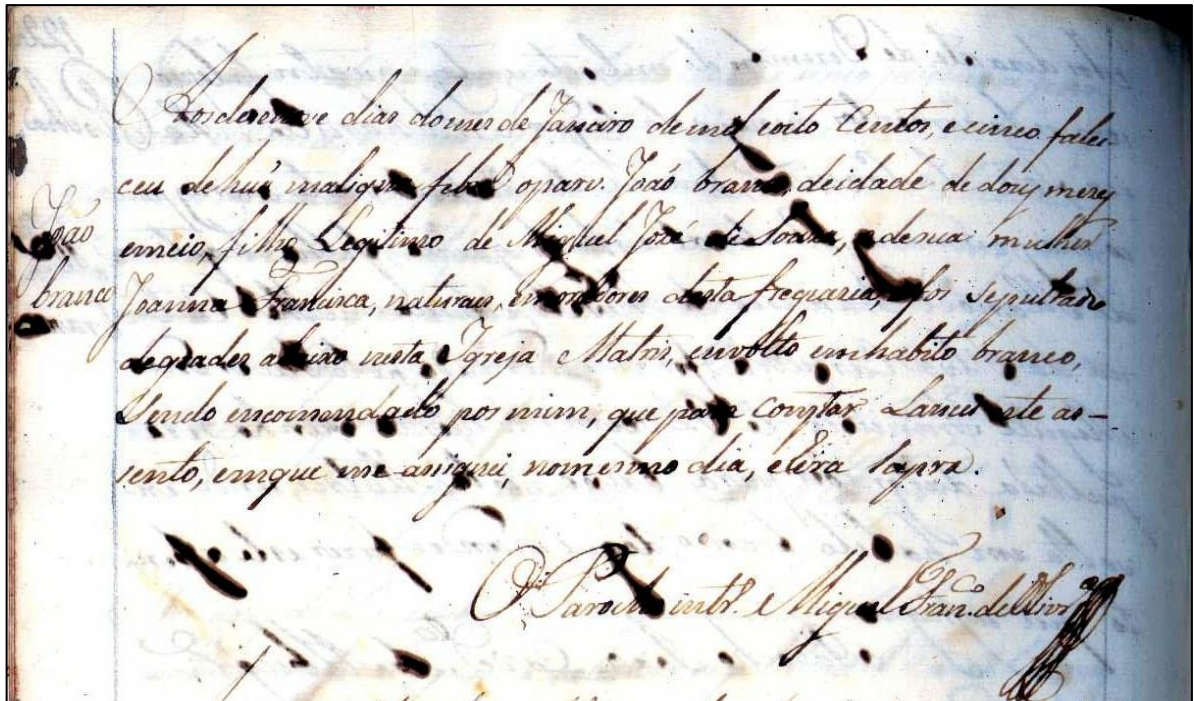 Aos desenove dias do mes de Janeiro de mil e oito Centos, e cinco fale-
ceu de huã maligna febre o parv. João branco, de idade de doiz mezes
João
branco
e meio, filho Legitimo de Miguel José de Souza, e de sua mulher
Joanna Francisca, naturaes, e moradores desta freguezia, e foi sepultado
de grades abaixo nesta Igreja Matris, envolto em habito branco,
Sendo encomendado por mim, que para constar Lancei este as-
sento, em que me assignei, no mesmo dia, e Era Supra.
O Parocho Miguel Fran.co de